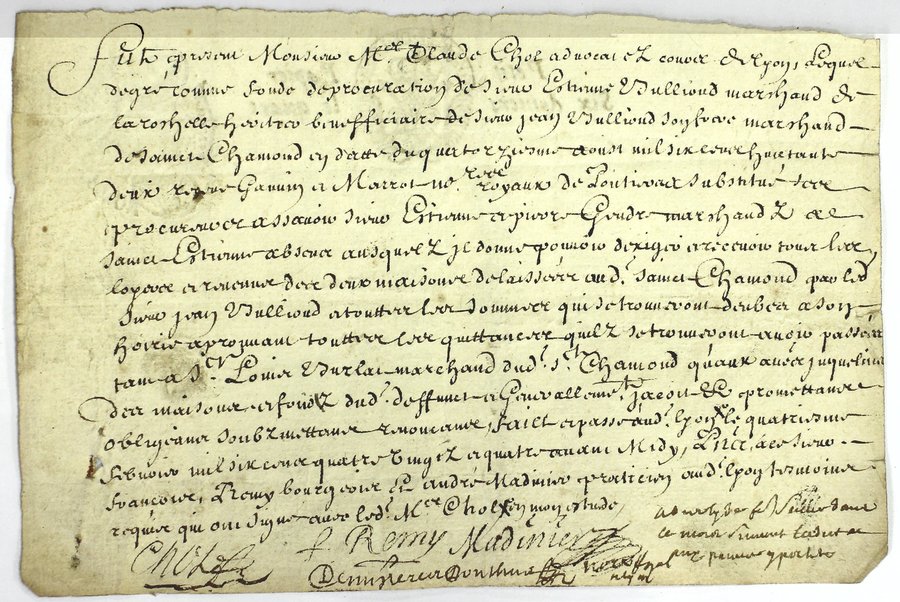 Fut present Monsieur Me Claude Chol advocat ez cours de lyon, Lequel
de gré comme fondé de procuration de sieur Estienne Vulliond marchand de
la roshelle heritier beneficiaire de sieur Jean Vulliond son frere marchand
de sainct Chamond en datte du quatorziesme aoust mil six cens huictante
deux receue Gamin et Marrot nores royaux de substitué ses
procureurs assavoir sieurs Estienne et pierre Gendre marchandz de
sainct Estienne absens ausquelz il donne pouvoir d'exiger et recevoir tous les
loyers et revenus des deux maisons delaissées aud. sainct Chamond par led.
sieur Jean Vulliond et touttes les sommes qui se trouveront deubes a son
hoirie approuvant touttes les quittances qu'ilz se trouveront avoir passées
tant a Sr. Louis marchand dud. St. Chamond qu'aux
des maisons et fondz dud. deffunct et generallement promettans
obligeans soubzmettans renonceans, faict et passé aud. lyon le quatriesme
febvrier mil six cens quatre vingtz et quatre avant Midy, sieur
François Remy bourgeois et André Madinier praticien aud. lyon tesmoins
requis qui ont signé avec led. Mr Chol en mon estude
Chol
f Remy Madinier